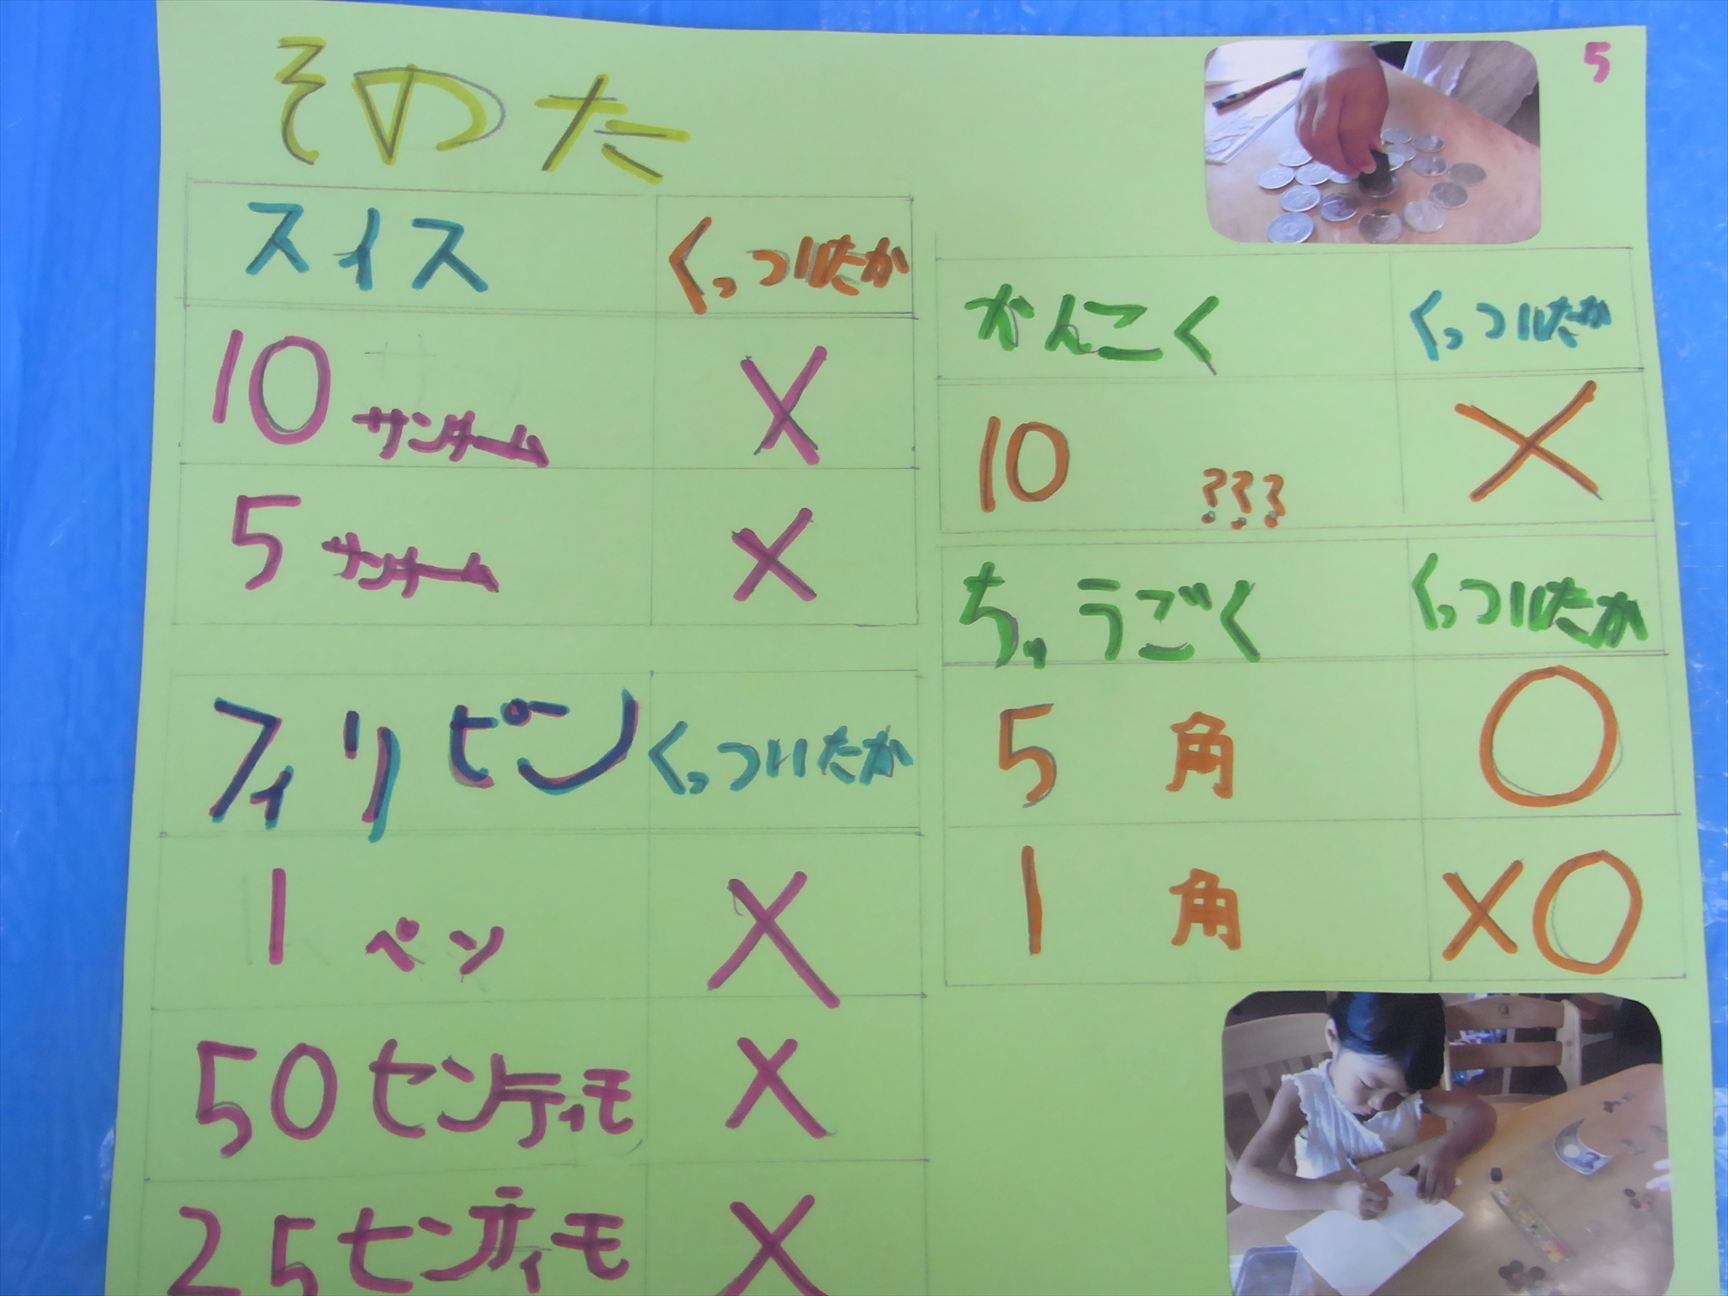 5
そのた
スイス くっついたか
10 サンチーム ×
5 サンチーム ×
フィリピン くっついたか
1 ペソ ×
50 センティモ ×
25 センティモ ×
かんこく くっついたか
10 ??? ×
ちゅうごく くっついたか
5 角 ○
1 角 ×○